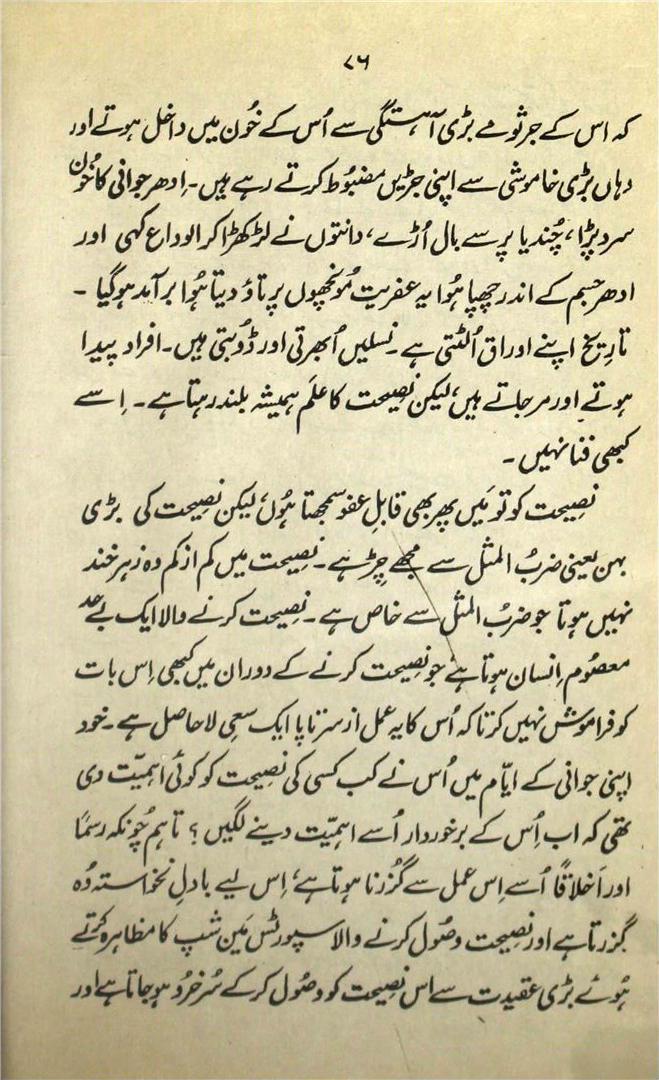 ۷۶
کہ اس کے جرثومے بڑی آہستگی سے اُس کے خُون میں داخل ہوتے اور
وہاں بڑی خاموشی سے اپنی جڑیں مضبُوط کرتے رہے ہیں۔ اِدھر جوانی کا خُون
سرد پڑا، چُندیا پر سے بال اُڑے، دانتوں نے لڑکھڑا کر الوداع کہی اور
ادھر جسم کے اندر چھپا ہُوا یہ عفریت مُونچھوں پر تاؤ دیتا ہُوا برآمد ہوگیا ۔
تاریخ اپنے اوراق اُلٹتی ہے ۔ نسلیں اُبھرتی اور ڈُوبتی ہیں۔ افراد پیدا
ہوتے اور مر جاتے ہیں، لیکن نصِیحت کا علَم ہمیشہ بلند رہتا ہے ۔ اِسے
کبھی فنا نہیں ۔
نصِیحت کو تو مَیں پھر بھی قابلِ عفو سمجھتا ہُوں، لیکن نصِیحت کی بڑی
بہن یعنی ضربُ المثل سے مجھے چِڑ ہے ۔ نصِیحت میں کم از کم وہ زہر خند
نہیں ہوتا جو ضربُ المثل سے خاص ہے ۔ نصِیحت کرنے والا ایک بے حد
معصُوم اِنسان ہوتا ہے جو نصِیحت کرنے کے دوران میں کبھی اِس بات
کو فراموش نہیں کرتا کہ اُس کا یہ عمل از سر تا پا ایک سعیِ لاحاصل ہے ۔ خود
اپنی جوانی کے ایّام میں اُس نے کب کسی کی نصِیحت کو کوئی اہمیّت دی
تھی کہ اب اُس کے برخوردار اُسے اہمیّت دینے لگیں ؟ تاہم چُونکہ رسماً
اور اَخلاقًا اُسے اِس عمل سے گُزرنا ہوتا ہے، اِس لیے بادلِ نخواستہ وُہ
گزرتا ہے اور نصِیحت وصُول کرنے والا سپورٹس مَین شپ کا مظاہرہ کرتے
ہُوئے بڑی عقیدت سے اس نصِیحت کو وصُول کرکے سُرخرُو ہو جاتا ہے اور